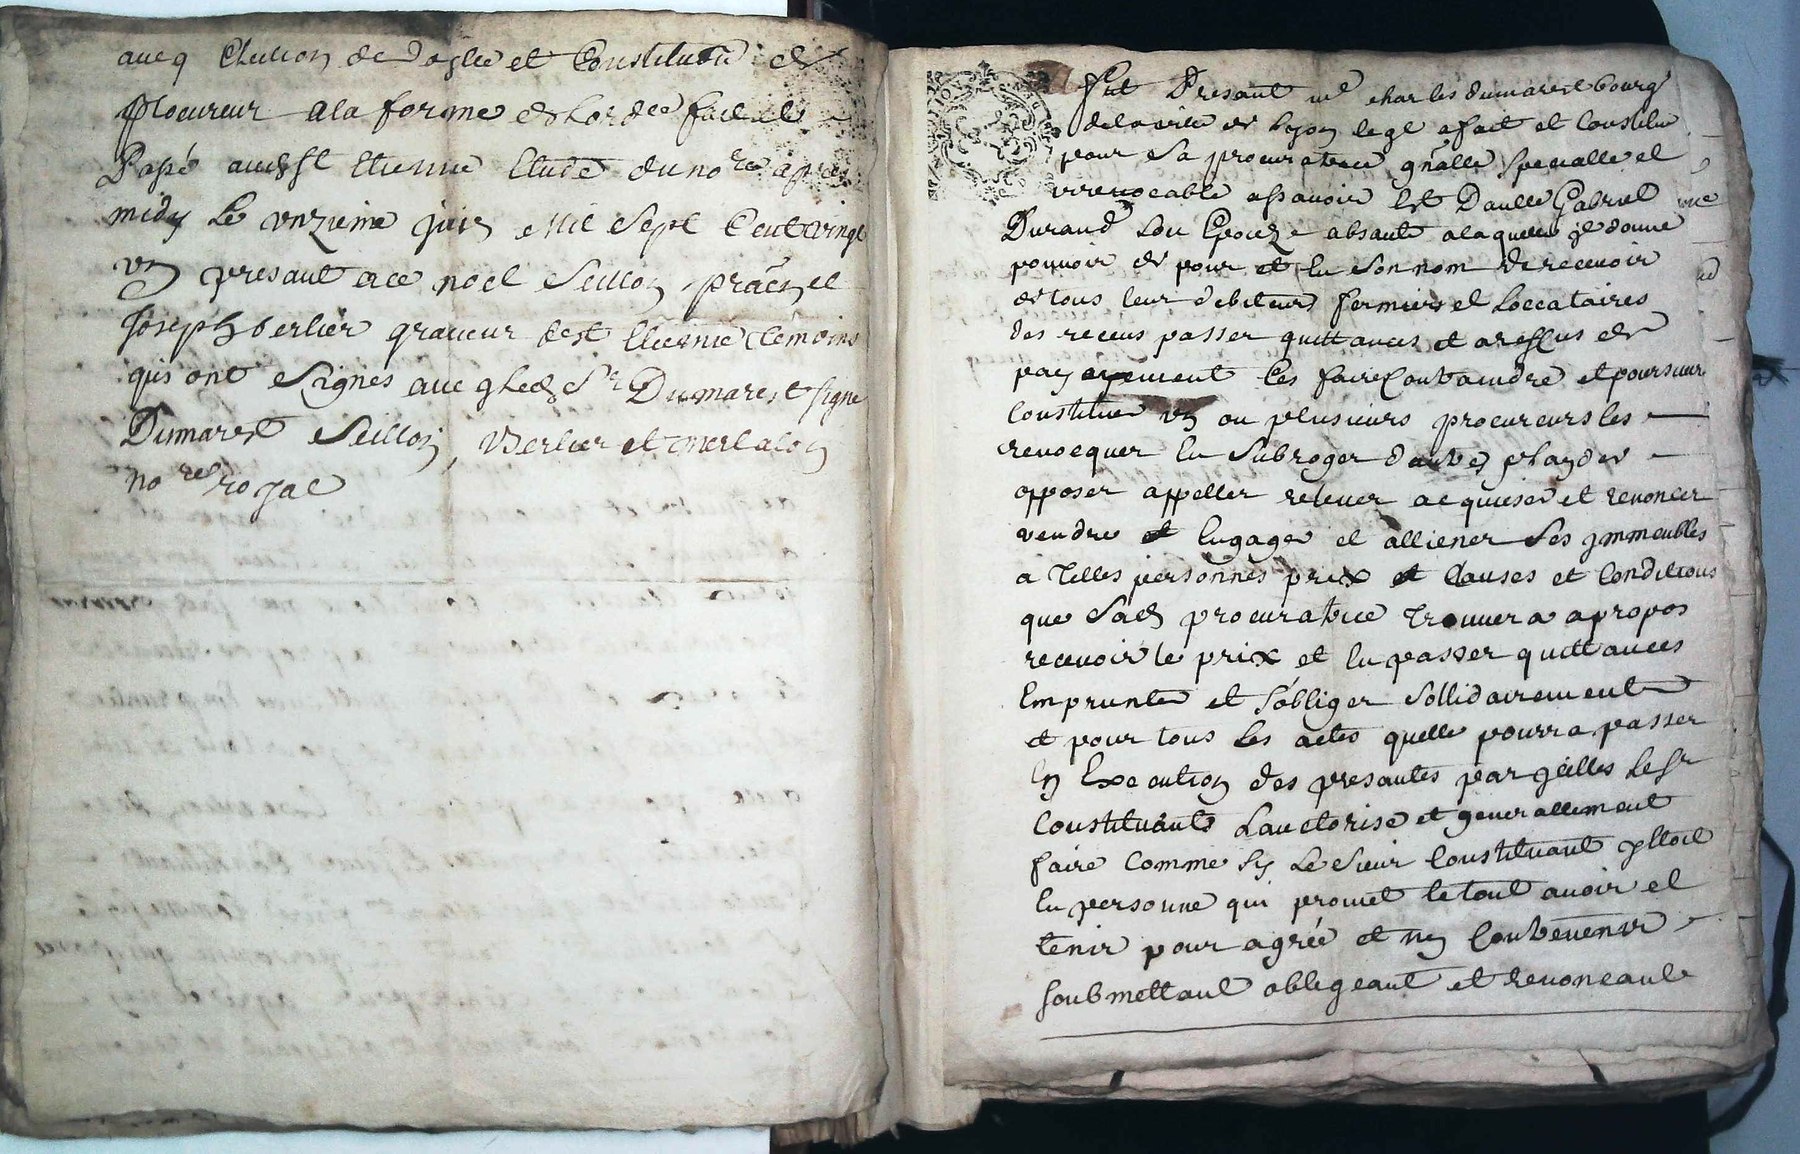 avecq Election de domicille et Constitution de
procureur a la forme de Lordce fait et
Passé audt St Etienne Etude du nore apres
midy le unzieme juin Mil Sept Cent vingt
un presant ace noel Seillon praen et
Joseph berlier graveur dest Etienne temoins
qui ont Signes avecq led Sr Dumarest signe
Dumarest Seillon, Berlier et merlalon
nore royal
fut Presant me charles dumarest bourgs
dela ville de lyon leql a fait et Constitue
pour Sa procuratrice gnalle Specialle et
irrevocable assavoir est Gabriel
Durand Son Epouze absante a laquelle jl donne
pouvoir de pour et En Son nom de recevoir
de tous leur debiteurs fermiers et Loccataires
des receus passer quittances et a reffus de
payement Les faire Contraindre et poursuivre
Constituer un ou plusieurs procureurs les
revocquer En Subroger dautres playder
opposer appeller relever acquieser et renoncer
vendre et Engager et alliener Ses jmmeubles
a Telles personnes prix et Clauses et Conditions
que Sad procuratrice Trouvera a propos
recevoir le prix et En passer quittances
Emprunter et Sobliger Sollidairement
et pour tous les actes quelle pourra passer
En Execution des presantes par qelles le Sr
Constituant Lauctorise et generallement
faire Comme Sy Le Sieur Constituant y Etoit
En personne qui promet le tout avoir et
tenir pour agréé et ny Contrevenir
Soubmettant obligeant et renoncant